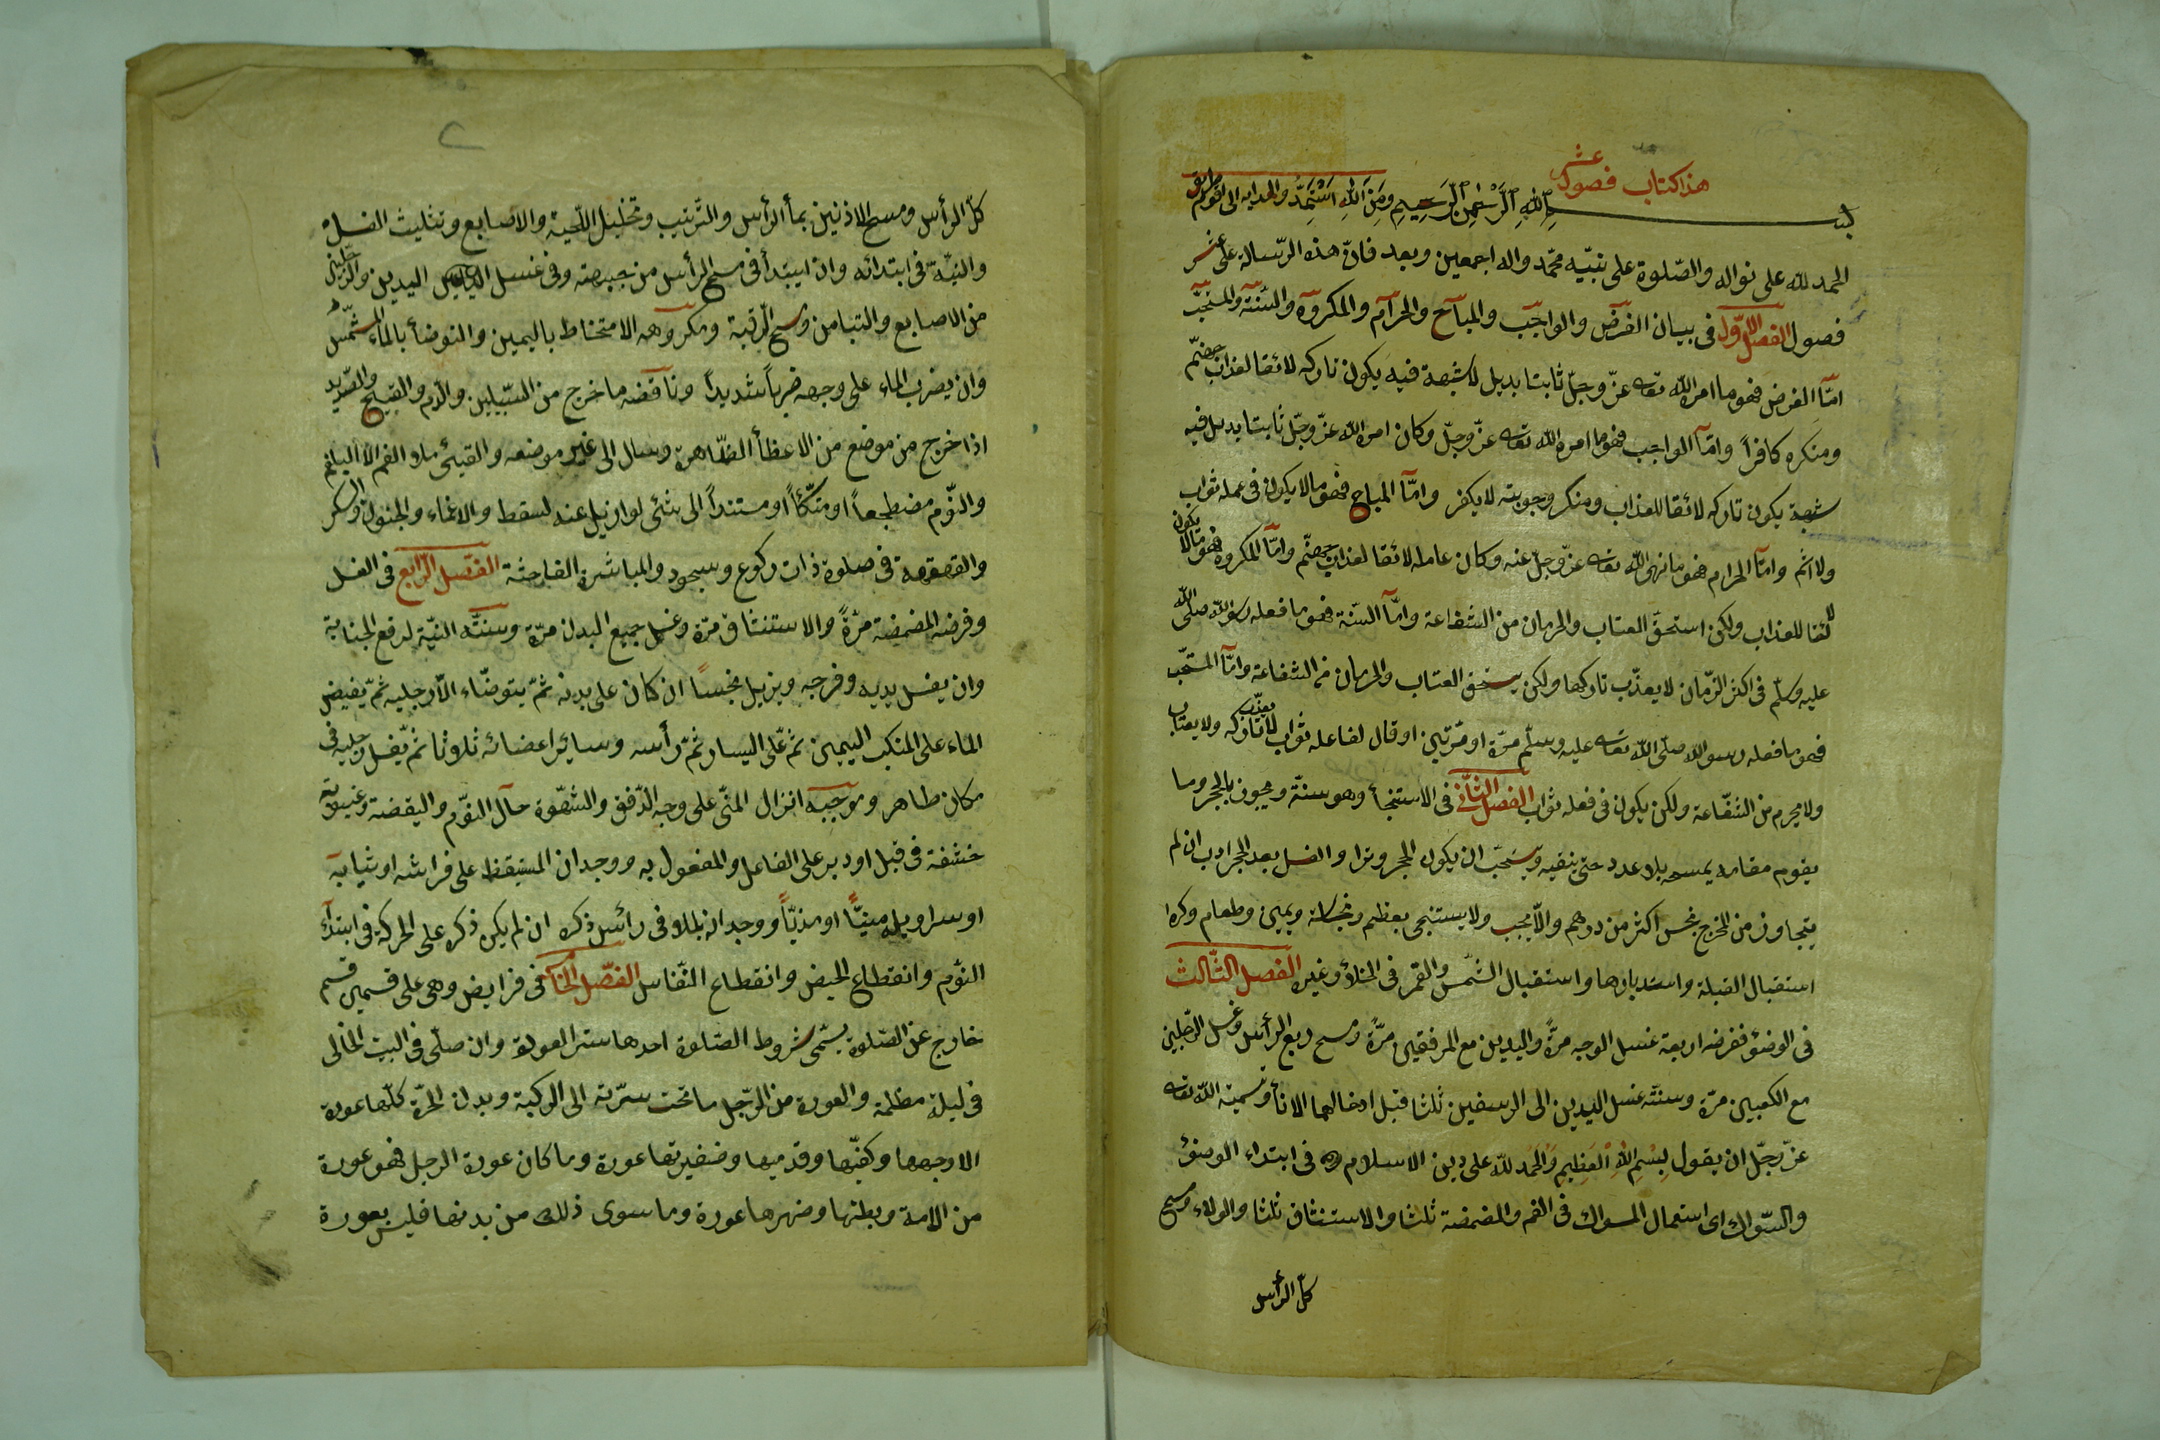 هذا كتاب فصول عشر
بسم الله الرحمن الرحيم ومن الله استمدّ والهدايه الى اقوم طريق
الحمد لله على نواله والصّلوة على نبيّه محمّد واله اجمعين وبعد فانّ هذه الرّسالة على عشر
فصول الفصل الاوّل فى بيان الفرض والواجب والمباح والحرام والمكروه والسّنة والمستحبّ
امّا الفرض فهو ما امره الله تعه عزّ وجلّ ثابتا بديل لا شبهة فيه يكون تاركه لائقا لعذاب جهنّم
ومنكره كافراً وامّا الواجب فهو ما امره الله تعه عزّ وجلّ وكان امره الله عزّ وجلّ ثابتا بديل فيه
شبهة يكون تاركه لائقا للعذاب ومنكر وجوبيته لا يكفر وامّا المباح فهو ما لا يكون فى عمله ثواب
ولا اثم وامّا الحرام فهو ما نهى الله تعه عزّ وجلّ عنه وكان عامله لائقا لعذاب جهنّم وامّا المكروه فهو ما لا يكون
لائقا للعذاب ولكن استحقّ العتاب والحرمان من الشفاعة وامّا السّنة فهو ما فعله رسول الله صلّى الله
عليه وسلّم فى اكثر الزّمان لا يعذّب تاركها ولكن يستحق العتاب والحرمان من الشفاعة وامّا المستحبّ
فهو ما فعله رسول الله صلّى الله تعه عليه وسلّم مرّة او مرّتين او قال لفاعله ثواب لا يعذّب تاركه ولا يعتاب
ولا يحرم من الشّفاعة ولكن يكون فى فعله ثواب الفصل الثّانى فى الاستنجاء وهو سنّة ويجوز بالحجر وما
يقوم مقامه يمسحه بلا عدد حتى ينقيه ويستحبّ ان يكون الحجر وترا والغسل بعد الحجر ادب ان لم
يتجاوز من المخرج نجس اكثر من درهم والّا يجب ولا يستنجى بعظم ونجاسة ويمين وطعام وكره
استقبال القبلة واستدبارها واستقبال الشّمس والقمر فى الخلاء وغيره الفصل الثّالث
فى الوضؤ ففرضه اربعة غسل الوجه مرّةً واليدين مع المرفقين مرّةً ومسح ربع الرأس وغسل الرّجلين
مع الكعبين مرّة وسنّته غسل اليدين الى الرسغين ثلثا قبل ادخالهما الاناء وتسمية الله تعه
عزّ وجلّ ان يقول بسم الله العظيم والحمد لله على دين الاسلام فى ابتداء الوضؤ
والسّواك اى استعمال المسواك فى الفم والمضمضة ثلثا والاستنشاق ثلثا والولاء ومسح
كلّ الرأس
كلّ الرأس ومسح الاذنين بماء الرأس والتّرتيب وتخليل اللّحية والاصابع وتثليث الغسل
والنيّة فى ابتدائه وان يبتدأ فى مسح الرأس من جبهته وفى غسل اليدين والرجلين
من الاصابع والتيامن ومسح الرّقبة ومكروهه الامتخاط باليمين والتوضأ بالماء المشمّس
وان يضرب الماء على وجهه ضرباً شديداً وناقضه ما خرج من السّبيلين والدّم والقيح والصّديد
اذا خرج من موضع من الاعظأ الظّاهرة وسال الى غير موضعه والقيئ ملاء الفم الّا البلغم
والنّوم مضطجعاً او متّكئاً او مستنداً الى شئى لو ازيل عنه لسقط والاغماء والجنون والسكر
والقهقهة فى صلوة ذات ركوع وسجود والمباشرة الفاحشة الفصل الرّابع فى الغسل
وفرضه المضمضة مرّةً والاستنشاق مرّة وغسل جميع البدن مرّة وسنّته النيّة لرفع الجنابة
وان يغسل يديه وفرجه ويزيل نجسا ان كان على بدنه ثمّ يتوضّاء الّا رجليه ثمّ يفيض
الماء على المنكب اليمين ثم على اليسار ثمّ رأسه وسائر اعضائه ثلاثا ثمّ يغسل رجليه فى
مكان طاهر وموجبه انزال المنىّ على وجه الدّفق والشّهوة حال النّوم واليقضة وغيبوبة
حشفة فى قبل او دبر على الفاعل والمفعول به ووجدان المستيقظ على فراشه او ثيابه
او سراويله منيّاً او مذيّاً ووجدانه بللا فى رأس ذكره ان لم يكن ذكره على الحركة فى ابتداء
النّوم وانقطاع الحيض وانقطاع النّفاس الفصل الخامس فى فرايض وهى على قسمين قسم
خارج عن الصّلوة يسمّى شروط الصّلوة احدها ستر العورة وان صلّى فى البيت الخالى
فى ليلة مظلمة والعورة من الرّجل ما تحت سرّته الى الركبة وبدن الحرّة كلّها عورة
الا وجهها وكفّيها وقدميها وضفيرتها عورة وما كان عورة الرجل فهو عورة
من الامة وبطنها وضهرها عورة وما سوى ذلك من بدنها فليس بعورة